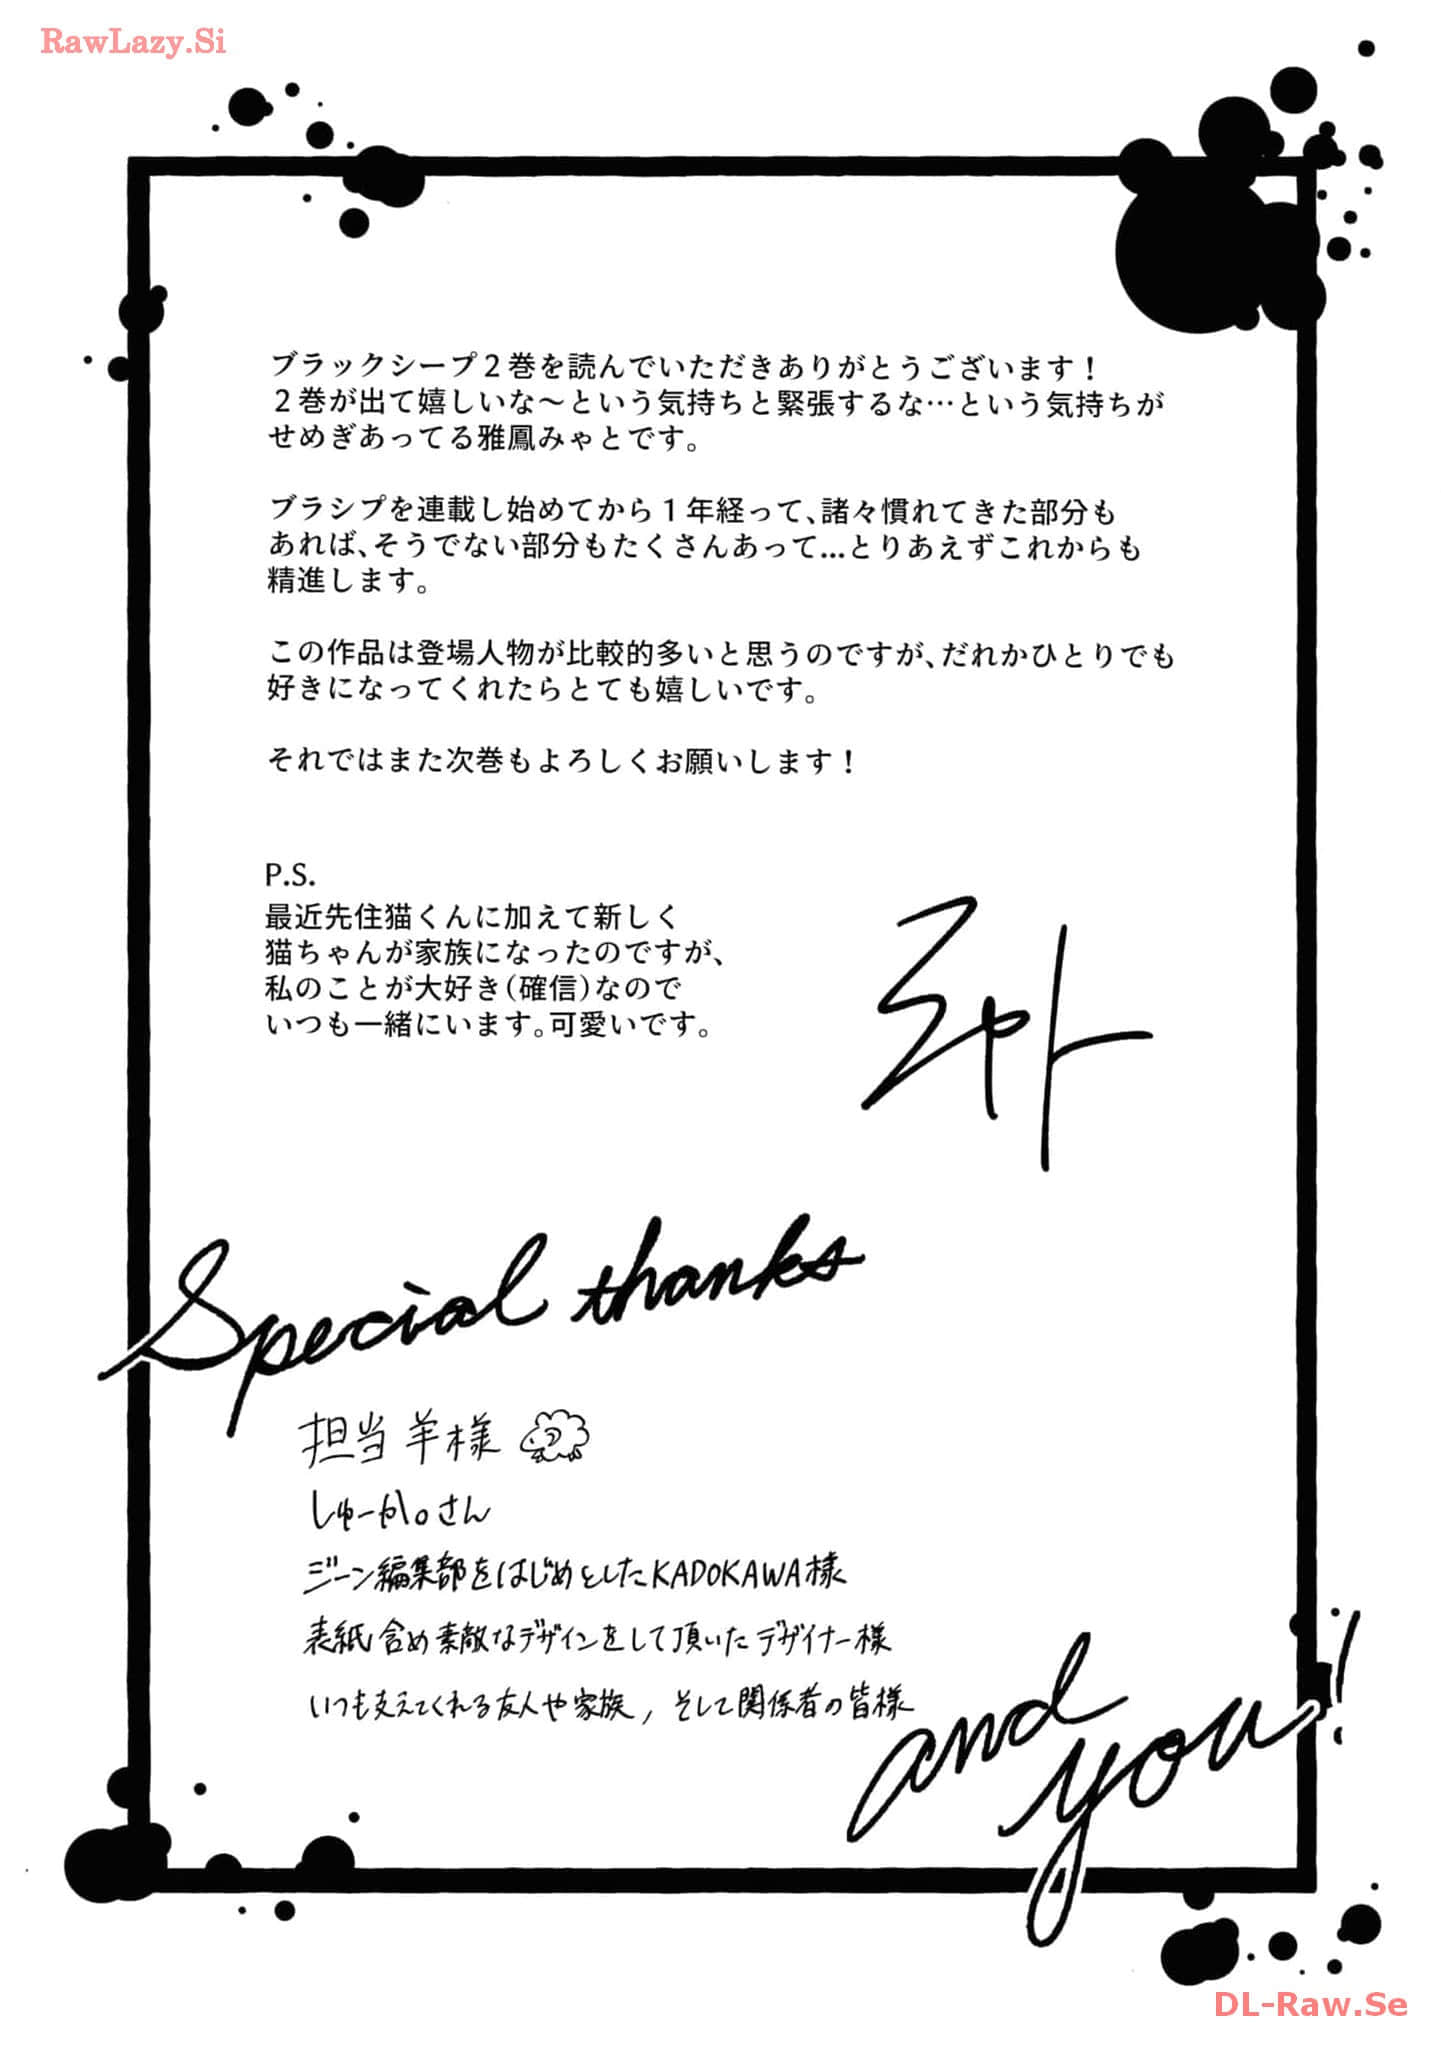 RawLazy.Si
ブラックシープ２巻を読んでいただきありがとうございます！
２巻が出て嬉しいな～という気持ちと緊張するな…という気持ちが
せめぎあってる雅鳳みゃとです。
ブラシプを連載し始めてから１年経って、諸々慣れてきた部分も
あれば、そうでない部分もたくさんあって…とりあえずこれからも
精進します。
この作品は登場人物が比較的多いと思うのですが、だれかひとりでも
好きになってくれたらとても嬉しいです。
それではまた次巻もよろしくお願いします！
P.S.
最近先住猫くんに加えて新しく
猫ちゃんが家族になったのですが、
私のことが大好き（確信）なので
いつも一緒にいます。可愛いです。
ミャト
Special thanks
担当 羊様
しゅーか。さん
ジーン編集部をはじめとしたKADOKAWA様
表紙含め素敵なデザインをして頂いたデザイナー様
いつも支えてくれる友人や家族, そして関係者の皆様
and
you!
DL-Raw.Se